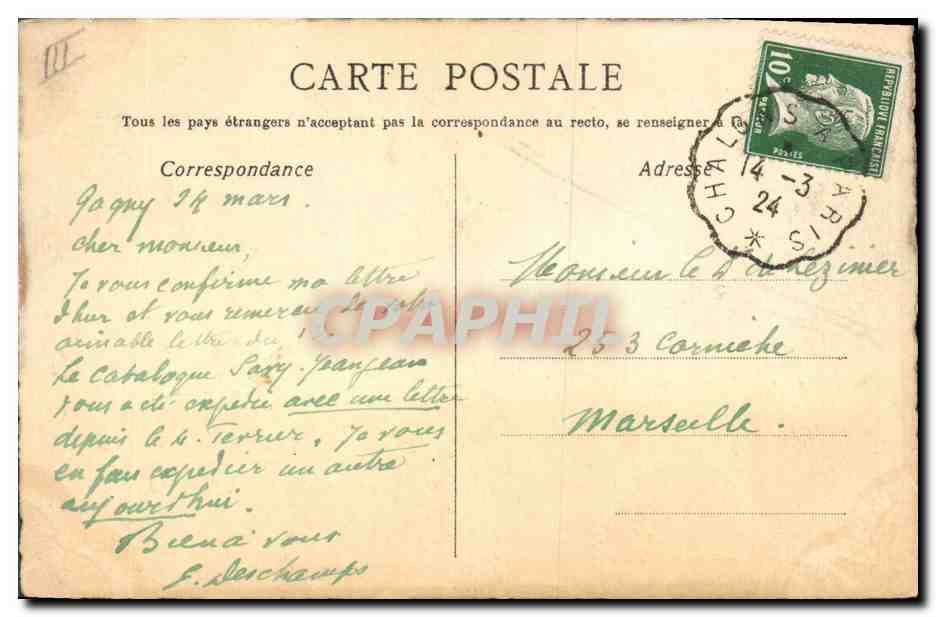 III
CARTE POSTALE
Tous les pays étrangers n'acceptant pas la correspondance au recto, se renseigner à la
Correspondance
Gagny 14 mars.
cher monsieur,
Je vous confirme ma lettre
d'hier et vous remercie de votre
aimable lettre du
Le Catalogue Savy-Jeanjean
vous a été expédié avec une lettre
depuis le 4 Février. Je vous
en fais expédier un autre
aujourd'hui.
Bien à vous
E. Deschamps
Adresse
Monsieur le Dr de Lézinier
253 Corniche
Marseille.
REPVBLIQVE FRANÇAISE
10c
PASTEUR
POSTES
CHALONS A PARIS
14 -3
24
CPAPHIL